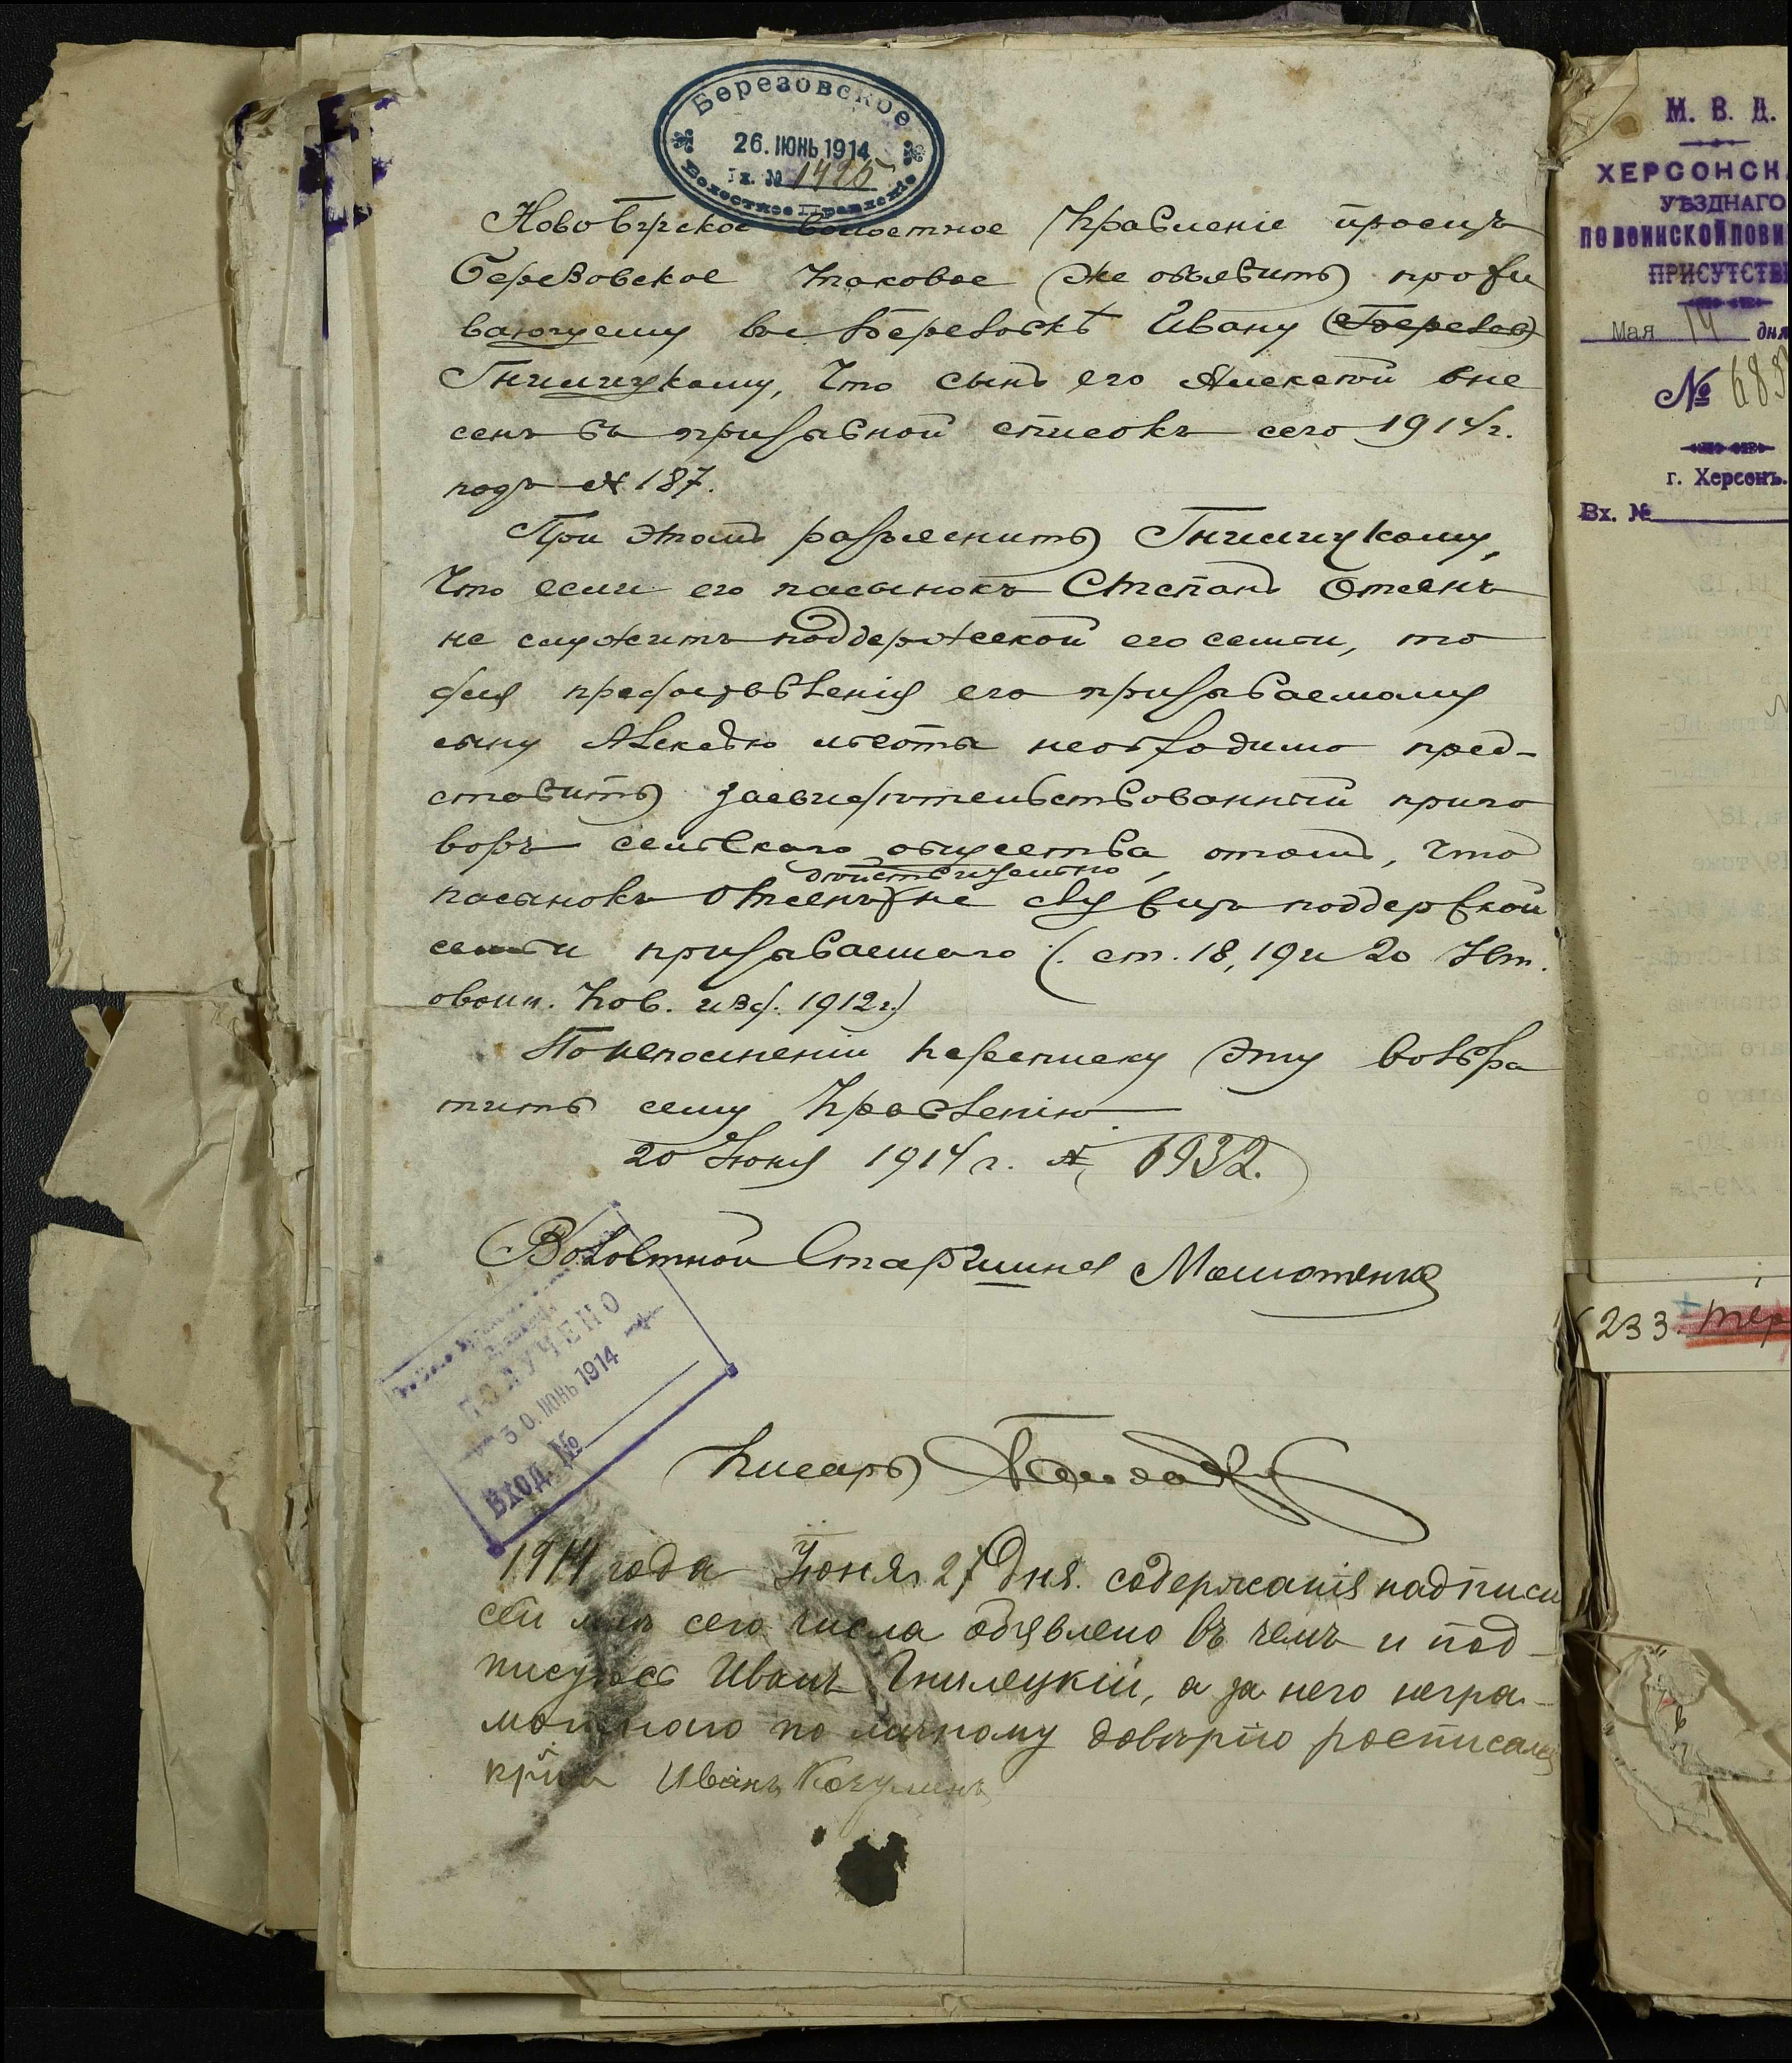 Березовское
26. ІЮНЬ 1914
Вх. № 1425
Волостное Правленіе
Волостное Правленіе проситъ
Березовское таковое же объявить прожи
вающему въ Березовкѣ Ивану
Гнилицкому, что сынъ его Алексѣй вне
сенъ въ призывной списокъ сего 1914 г.
подъ № 187.
При этомъ разъяснить Гнилицкому,
что если его пасынокъ Степанъ
не служитъ поддержкой его семьи, то
для предоставленія его призываемому
сыну Алексѣю льготы необходимо пред-
ставить засвидѣтельствованный приго
воръ сельскаго общества о томъ, что
дѣйствительно
пасынокъ не служитъ поддержкой
семьи призываемаго (ст. 18, 19 и 20 Уст.
о воин. пов. изд. 1912 г.)
По исполненіи переписку эту возвра
тить сему Правленію.
20 Іюня 1914 г. № 6932.
Волостной Старшина
Писарь
ПОЛУЧЕНО
30. ІЮНЬ 1914
ВХОД. №
1914 года Іюня 27 дня. содержанія надписи
сей мнѣ сего числа объявлено въ чемъ и под-
писуюсь Иванъ Гнилецкій, а за него негра-
мотнаго по личному довѣрію росписался
Иванъ
М. В. Д.
ХЕРСОНСК
УѢЗДНАГО
ПО ВОИНСКОЙ ПОВИ
ПРИСУТСТВ
Мая 14 дня
№ 683
г. Херсонъ.
Вх. №
233